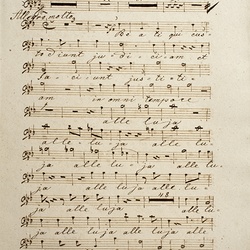 Allegro molto
Be a ti qui cus
to diunt ju di ci um et
fa ci unt jus ti ti
am in om ni tempore
alle lu ja
al le lu ja alle lu
ja alle lu ja alle lu
ja alle lu ja alle lu
ja alle luja 48
ja alle luja alle lu
ja alle lu ja alle lu